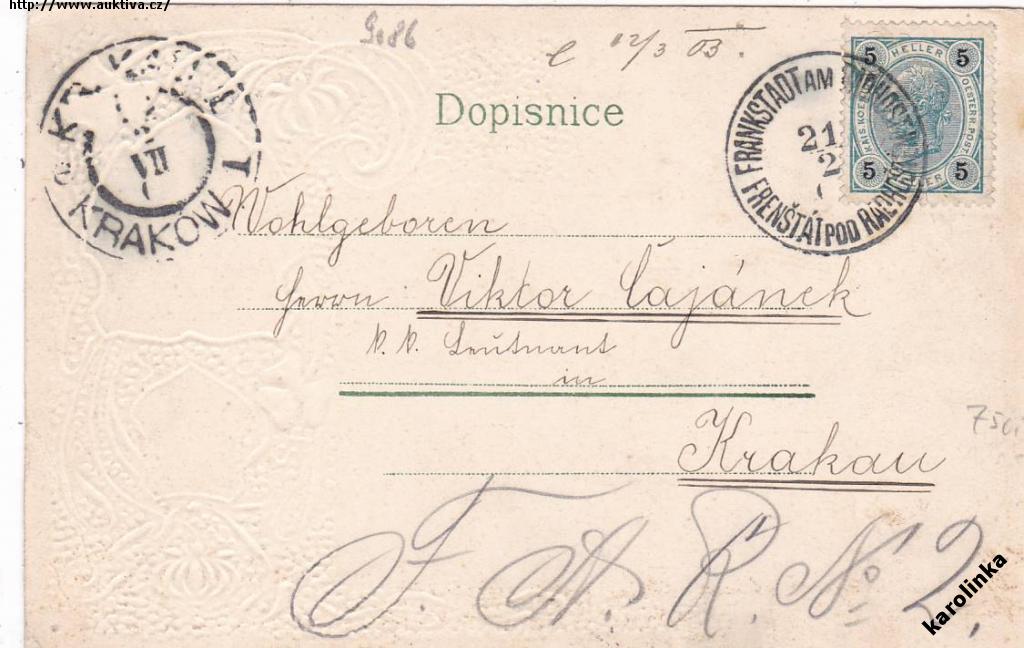 http://www.auktiva.cz/
9086
12/3 03.
Dopisnice
KRAKÓW
FRANKSTADT AM
21
2
FRENŠTÁT POD RADH
5 HELLER 5
OESTERR. POST.
5 HELLER 5
Wohlgeboren
Herrn Viktor Čajánek
k. k. Leutnant
in
Krakau
F. A. R. No. 2.
karolinka